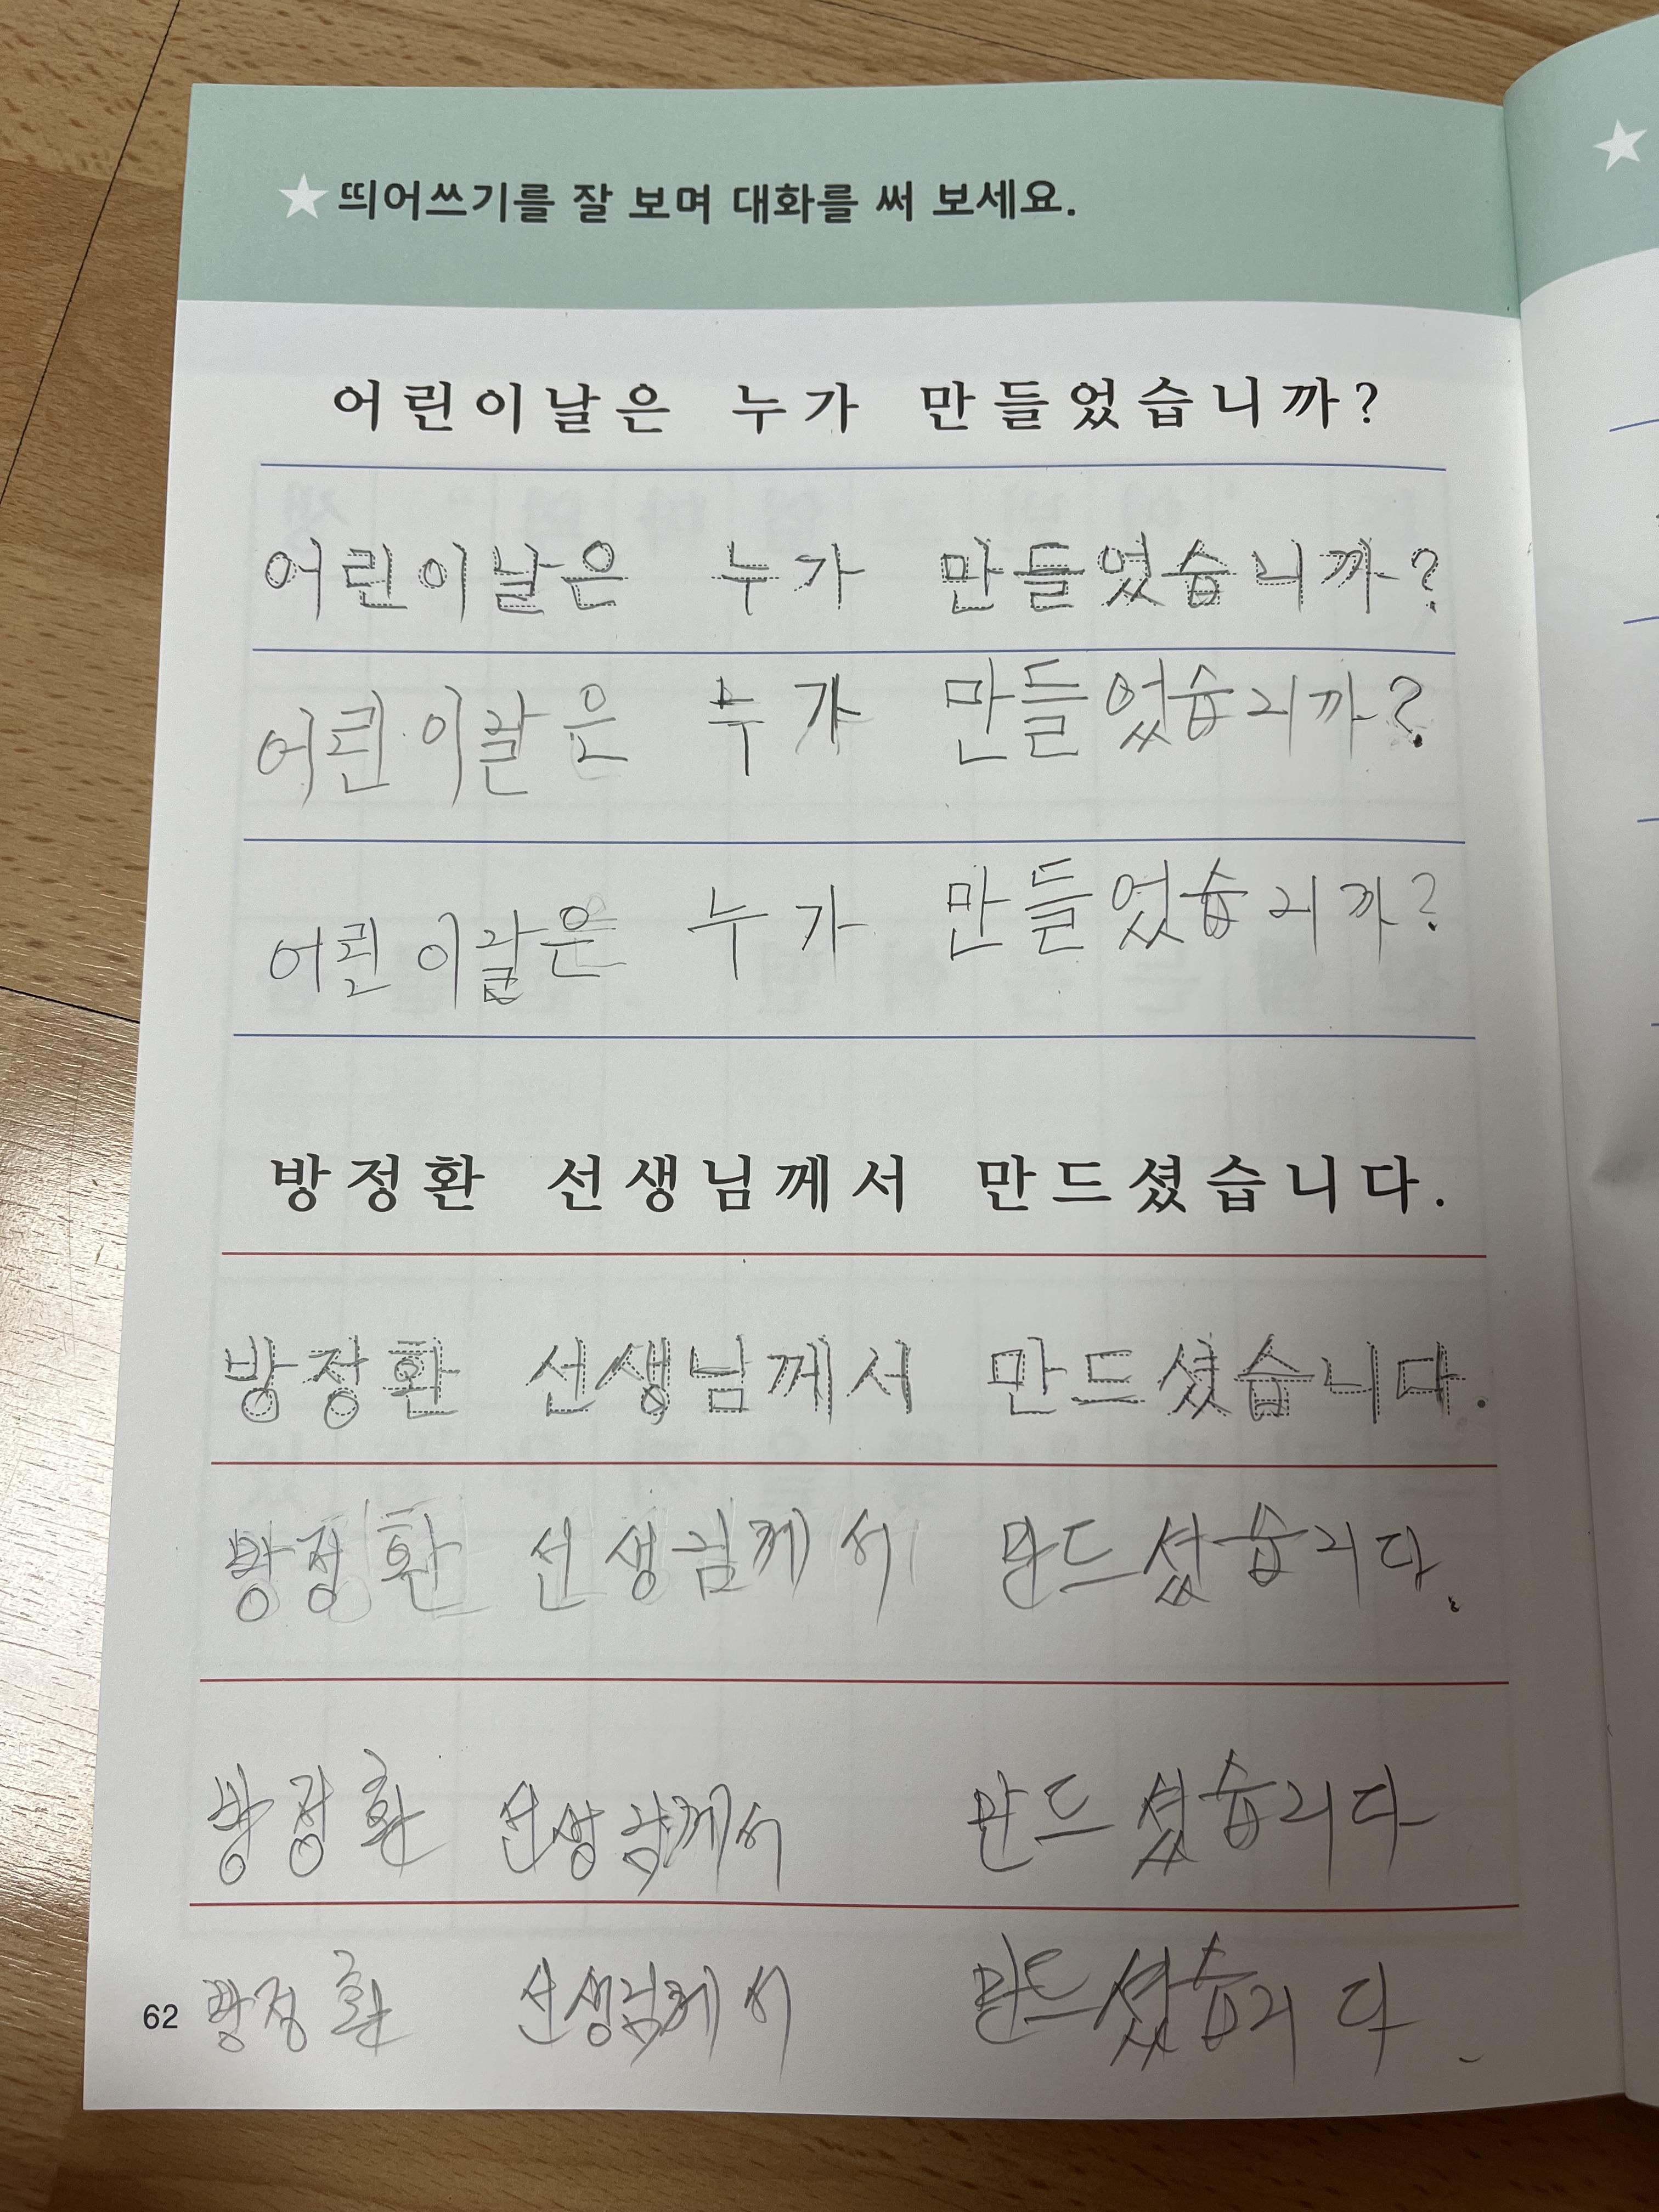 ★띄어쓰기를 잘 보며 대화를 써 보세요.
어린이날은 누가 만들었습니까?
어린이날은 누가 만들었습니까?
어린이날은 누가 만들었습니까?
어린이날은 누가 만들었습니까?
방정환 선생님께서 만드셨습니다.
방정환 선생님께서 만드셨습니다.
방정환 선생님께서 만드셨습니다.
방정환 선생님께서 만드셨습니다
방정환 선생님께서 만드셨습니다.
62